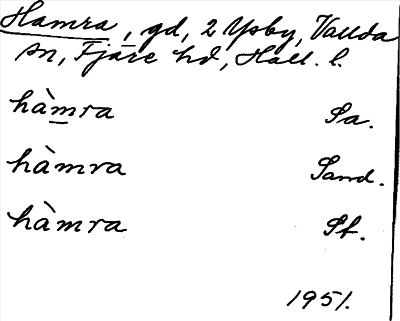 Hamra, gd, 2 Ysby, Vallda
sn, Fjäre hd, Hall. l.
hàmra Sa.
hàmra Sand.
hàmra St.
1951.